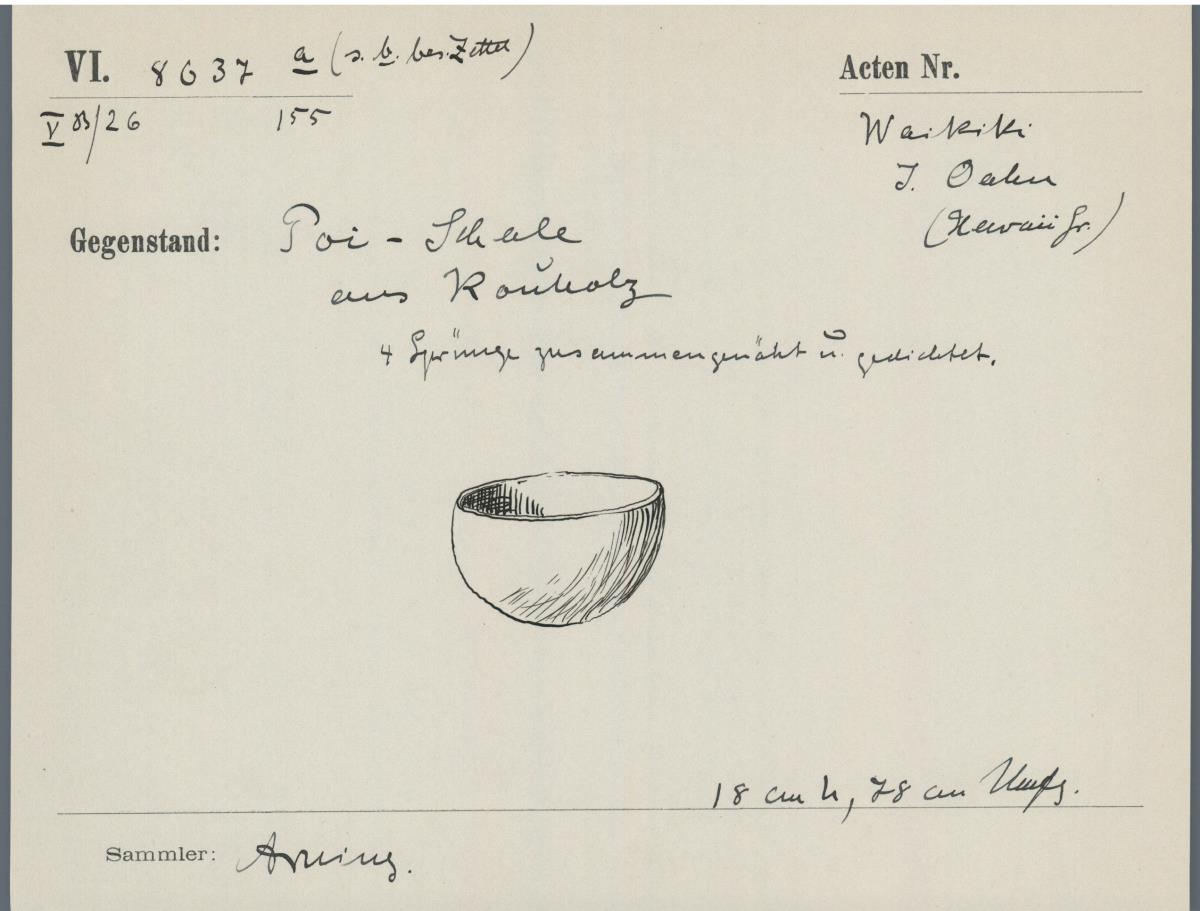 VI. 8637 a (s. b. bes. Zettel)
Acten Nr.
V B/26 155
Waikiki
I. Oahu
(Hawaii Gr.)
Gegenstand: Poi - Schale
aus Kouholz
4 Sprünge zusammengenäht u. gedichtet.
18 cm h, 78 cm Umfg.
Sammler: Arning.